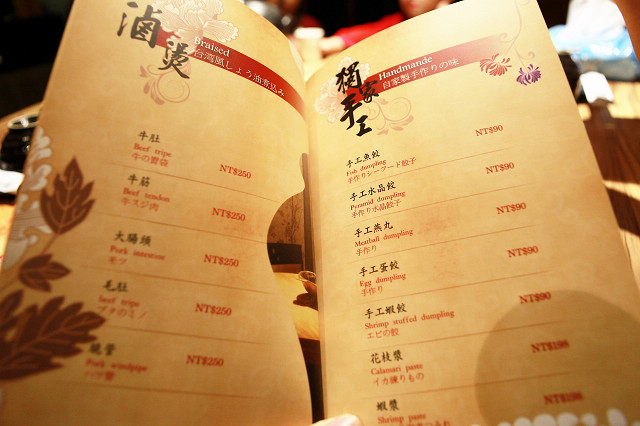 滷燙
Braised
台湾風しょう油煮込み
牛肚
Beef tripe
牛の胃袋
NT$250
牛筋
Beef tendon
牛スジ肉
NT$250
大腸頭
Pork intestine
モツ
NT$250
毛肚
beef tripe
ブタのミノ
NT$250
龍管
Pork windpipe
ハツ管
NT$250
獨家手工
Handmande
自家製手作りの味
手工魚餃
Fish dumpling
手作りシーフード餃子
NT$90
手工水晶餃
Pyramid dumpling
手作り水晶餃子
NT$90
手工燕丸
Meatball dumpling
手作り
NT$90
手工蛋餃
Egg dumpling
手作り
NT$90
手工蝦餃
Shrimp stuffed dumpling
エビの餃
NT$90
花枝漿
Calamari paste
イカ練りもの
NT$198
蝦漿
Shrimp paste
NT$198